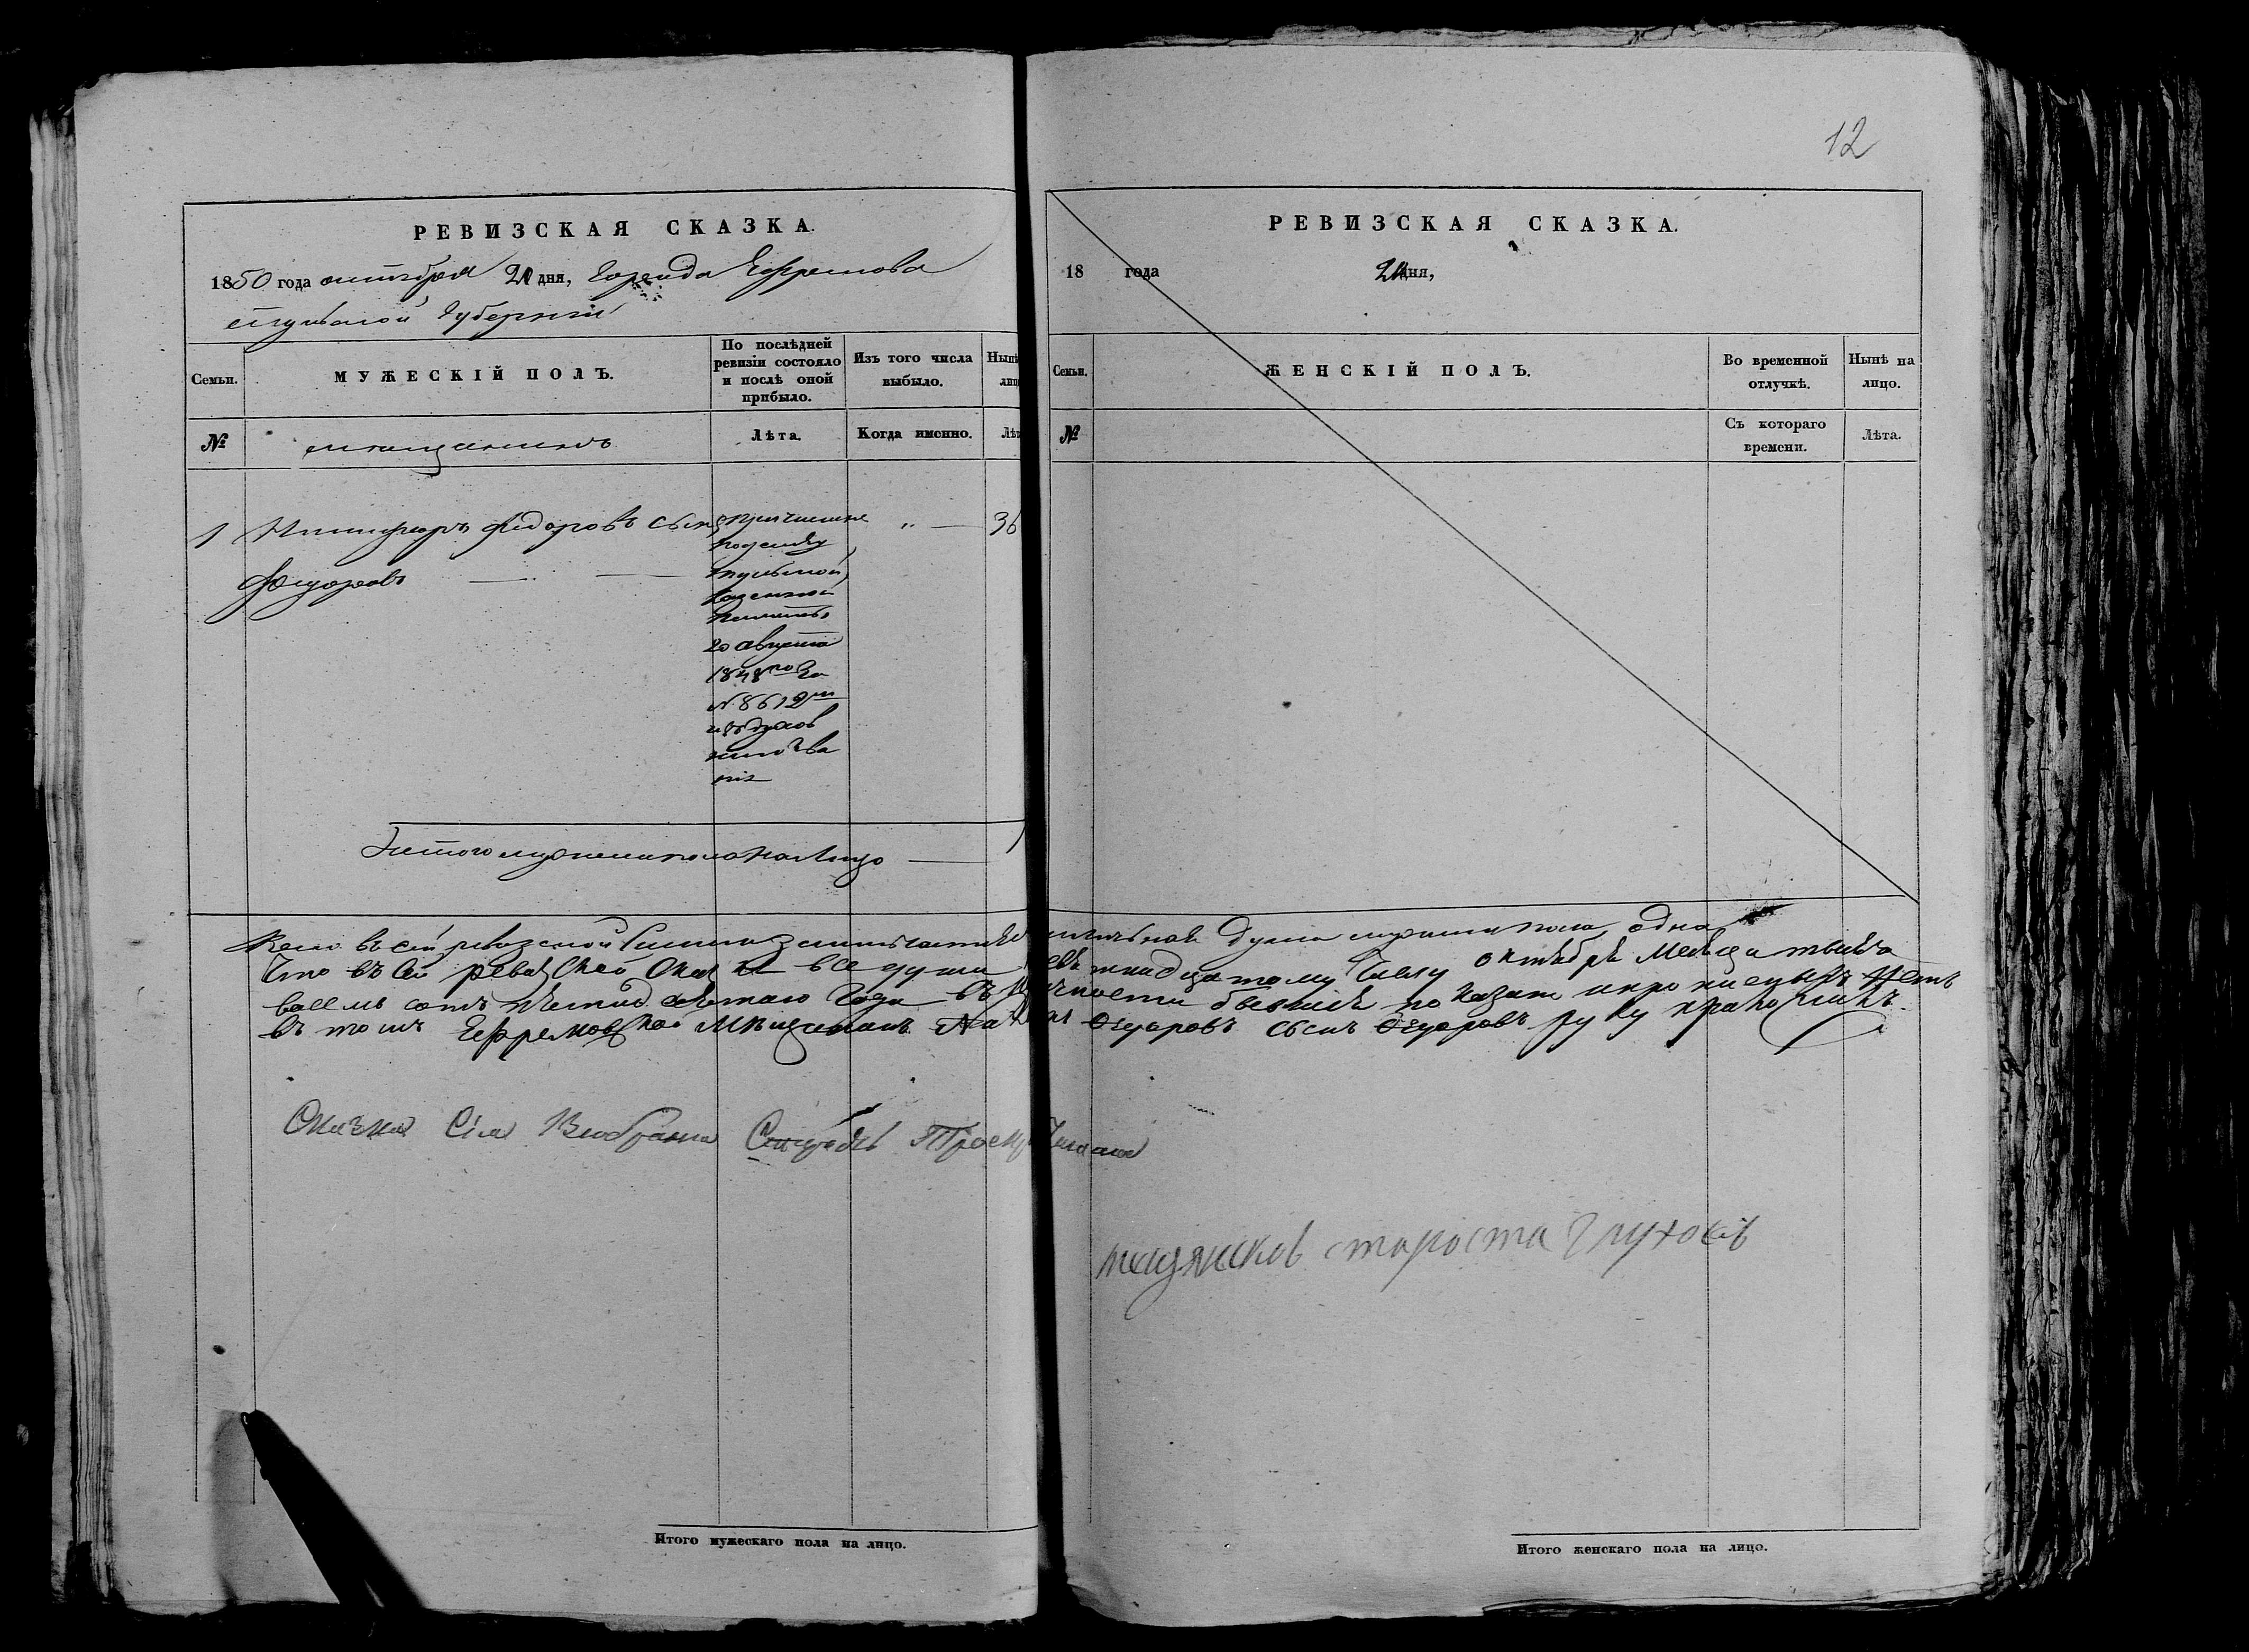 12
РЕВИЗСКАЯ СКАЗКА.
1850 года октября 20 дня, города Ефремова
тульской губернии
Семьи.
МУЖЕСКІЙ ПОЛЪ.
По послѣдней ревизіи состояло и послѣ оной прибыло.
Изъ того числа выбыло.
Нынѣ
лиц
№
мещанинъ
Лѣта.
Когда именно.
Лѣт
1 Никифоръ Федоровъ сынъ
Федоровъ
причислен
по указу
тульской
казенной
палаты
20 августа
1848го За
№ 8612м
из духов
наго зва
нія
„ — 36
Итого мужеска пола на лицо — 1
РЕВИЗСКАЯ СКАЗКА.
18 года 20 дня,
Семьи.
ЖЕНСКІЙ ПОЛЪ.
Во временной отлучкѣ.
Нынѣ на лицо.
№
Съ котораго времени.
Лѣта.
Всего въ сей ревизской душа мужеска пола одна
Что въ сей ревизской сказки все души числу октября месяца тысяча
восемь сотъ пятидесятаго года въ показаны и прописныхъ нетъ
въ томъ Ефремовской Мещанинъ Ѳедоровъ сынъ Ѳедоровъ руку приложилъ
Сказка Сія
мещянсков староста Глухов
Итого мужескаго пола на лицо.
Итого женскаго пола на лицо.